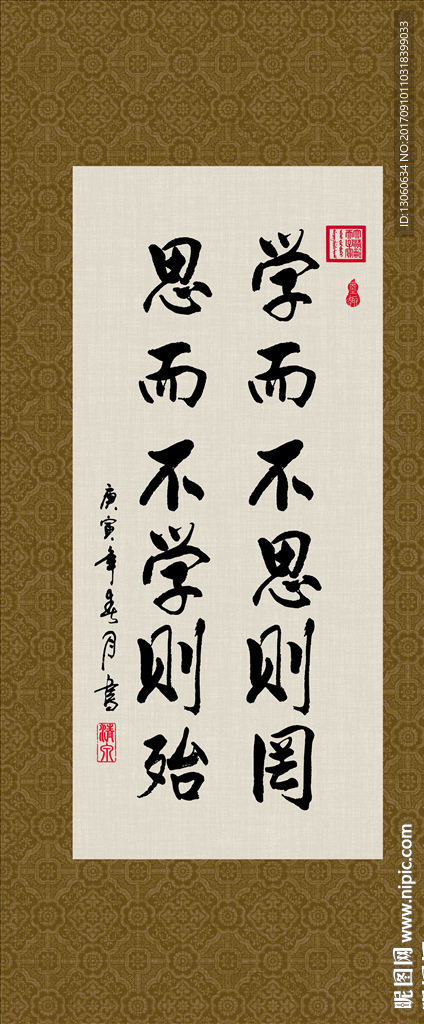 学而不思则罔
思而不学则殆
庚寅年春月书
清泉
ID:13060634 NO:20170910110318399033
昵图网 www.nipic.com